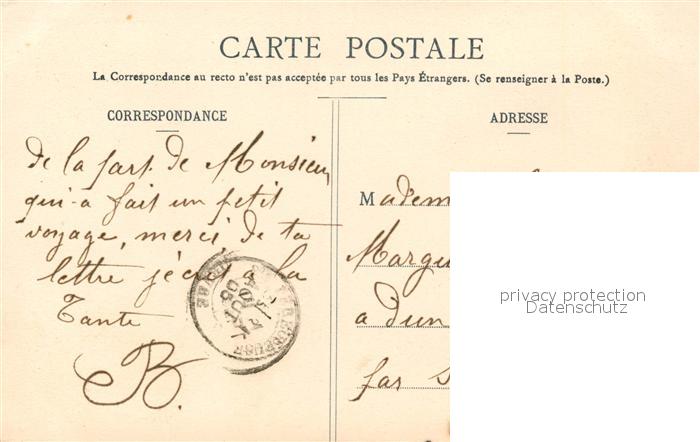 CARTE POSTALE
La Correspondance au recto n'est pas acceptée par tous les Pays Étrangers. (Se renseigner à la Poste.)
CORRESPONDANCE
de la part de Monsieur
qui a fait un petit
voyage, merci de ta
lettre j'écris à la
Tante
B.
ADRESSE
Madem
Margu
a Dun
par S
privacy protection
Datenschutz